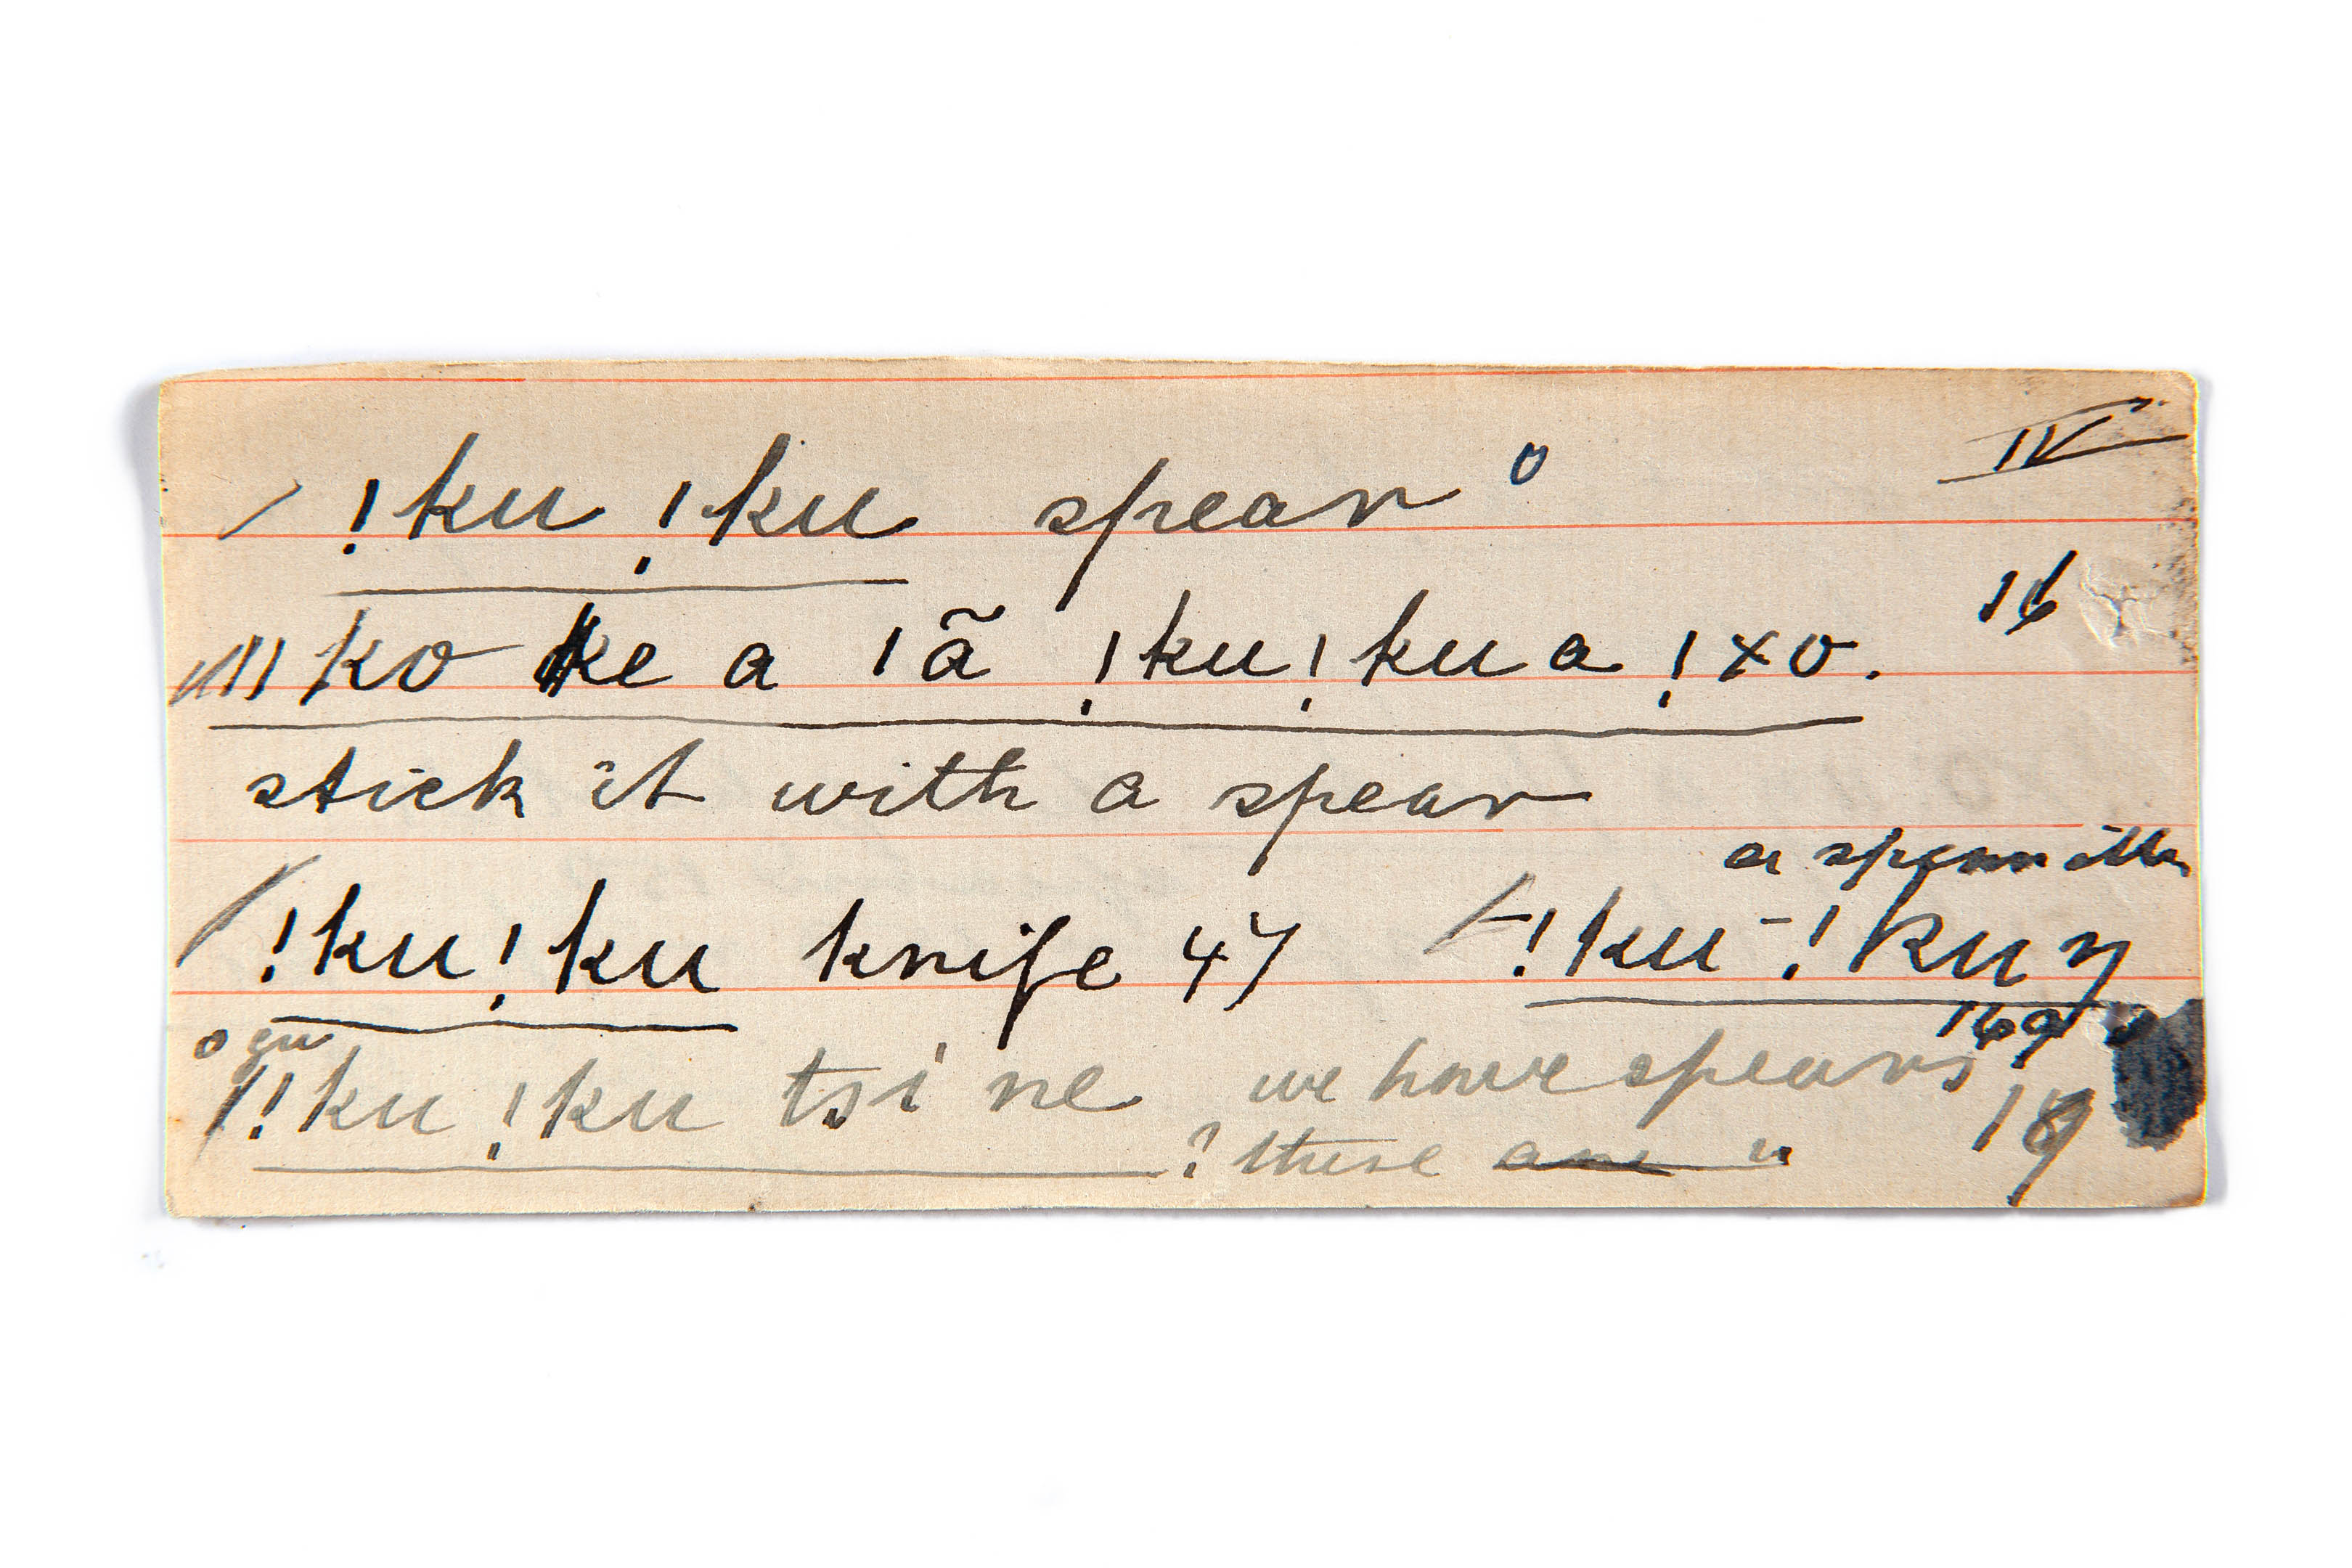 IV
!ku !ku spear o
16
ko ke a ǀã !ku!ku a !xo.
stick it with a spear
!ku!ku knife 47
a spear
!ku-!ku ŋ
169
!ku !ku tsi ne we have spears
? these are "